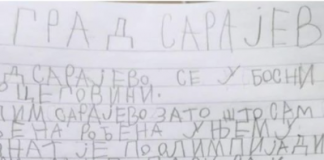 ГРАД САРАЈЕВ
Д САРАЈЕВО СЕ У БОСНИ
ЦЕГОВИНИ.
ИМ САРАЈЕВО ЗАТО ШТО САМ
ЕНА РОЂЕНА У ЊЕМУ
НАТ ЈЕ ПО ОЛИМПИЈАДИ